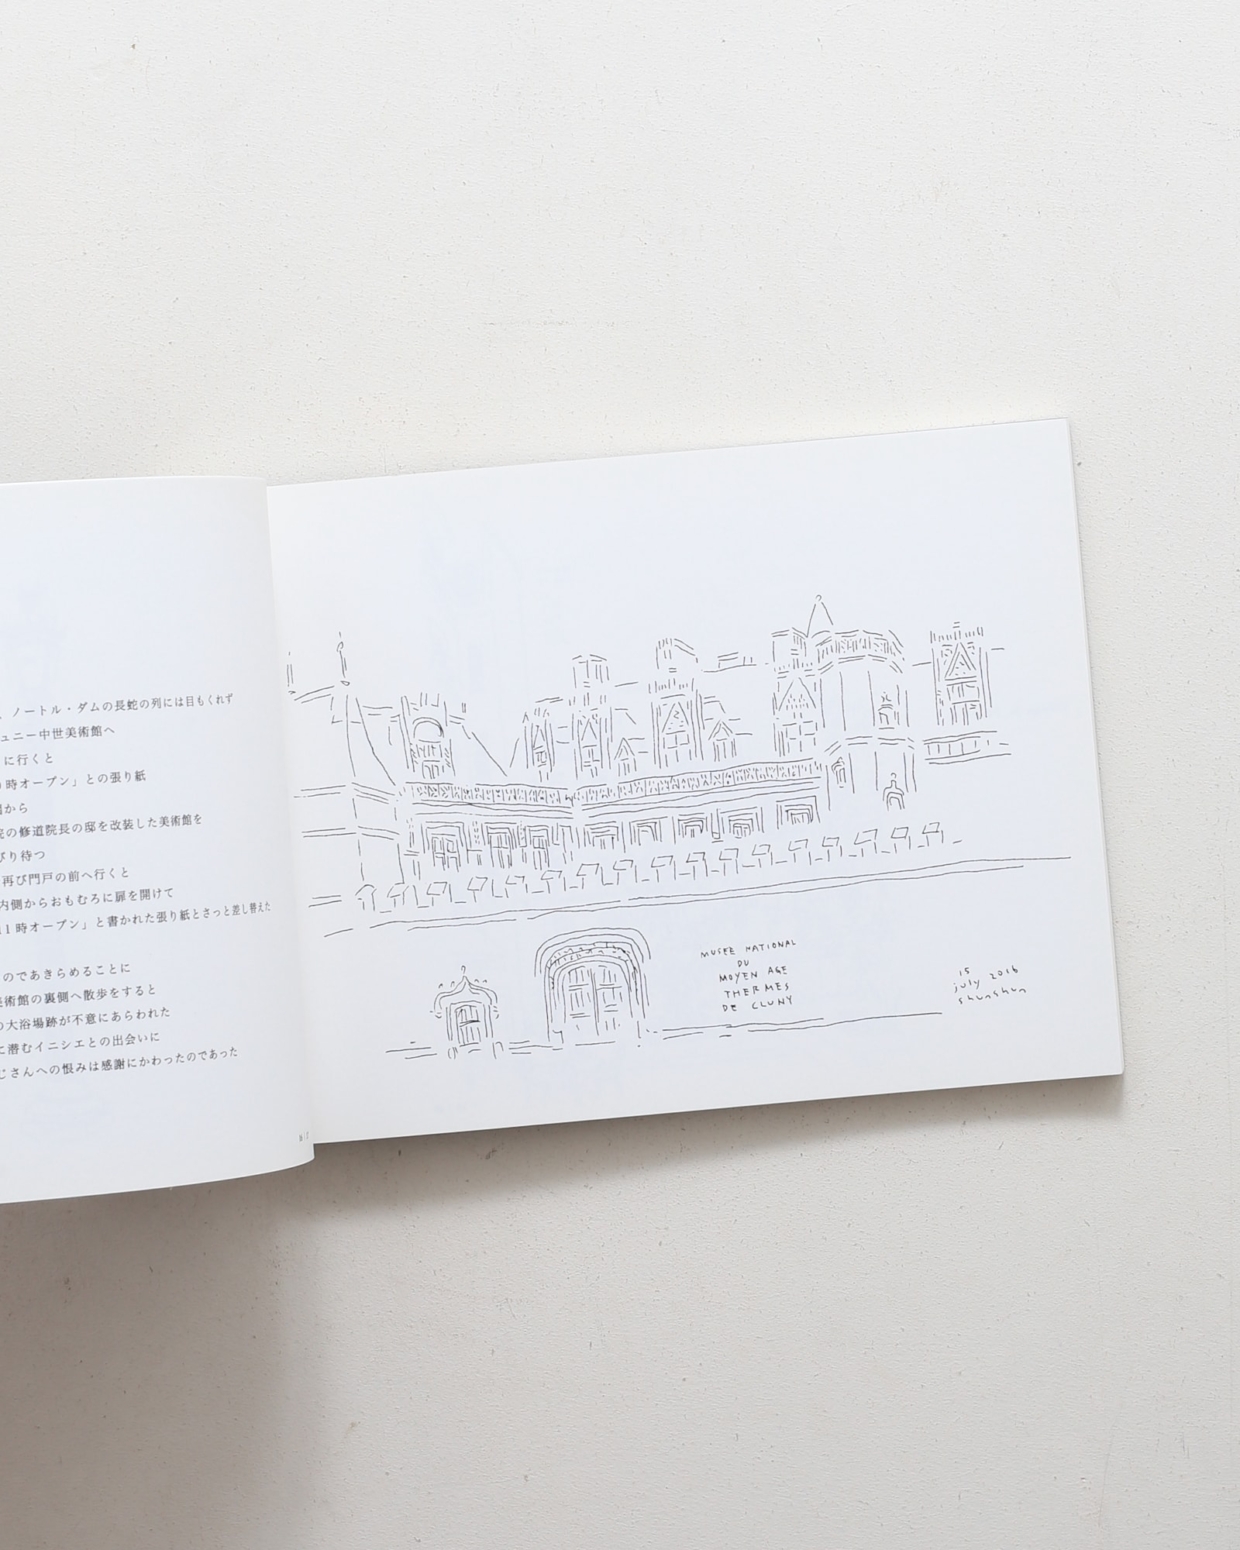 、ノートル・ダムの長蛇の列には目もくれず
ュニー中世美術館へ
に行くと
時オープン」との張り紙
から
の修道院長の邸を改装した美術館を
びり待つ
再び門戸の前へ行くと
内側からおもむろに扉を開けて
11時オープン」と書かれた張り紙とさっと差し替えた
のであきらめることに
美術館の裏側へ散歩をすると
の大浴場跡が不意にあらわれた
に潜むイニシエとの出会いに
じさんへの恨みは感謝にかわったのであった
MUSEE NATIONAL
DU
MOYEN AGE
THERMES
DE CLUNY
15
july 2016
shunshun